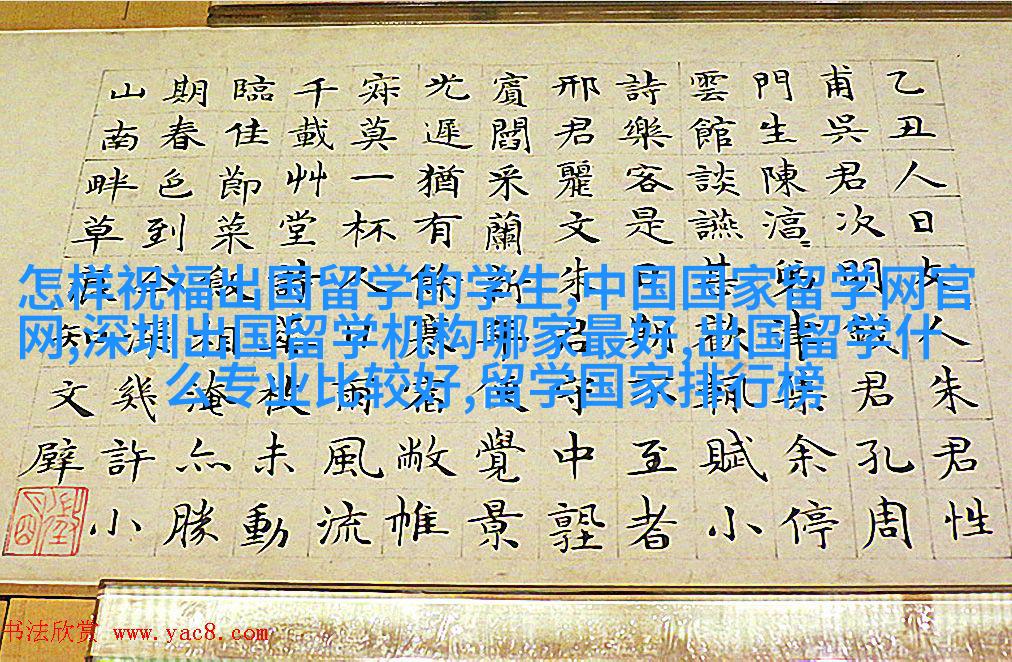 乙丑人日友人朱君性
甫吳君次君孔周
門生陳淳余停
雲館談讌甚歡輒賦小
詩樂客是日不至者
邢君麗文朱君守中
賓閻采蘭新覺景
光遲猶有餘寒敝帷
寂莫一杯兩風流
千載艸堂詩未動
臨佳節菜飯相淹亦勝
期春色到幾許小
山南畔草知文壁
怎样祝福出国留学的学生,中国国家留学网官
网,深圳出国留学机构哪家最好,出国留学什
么专业比较好,留学国家排行榜
书法欣赏 www.yac8.com